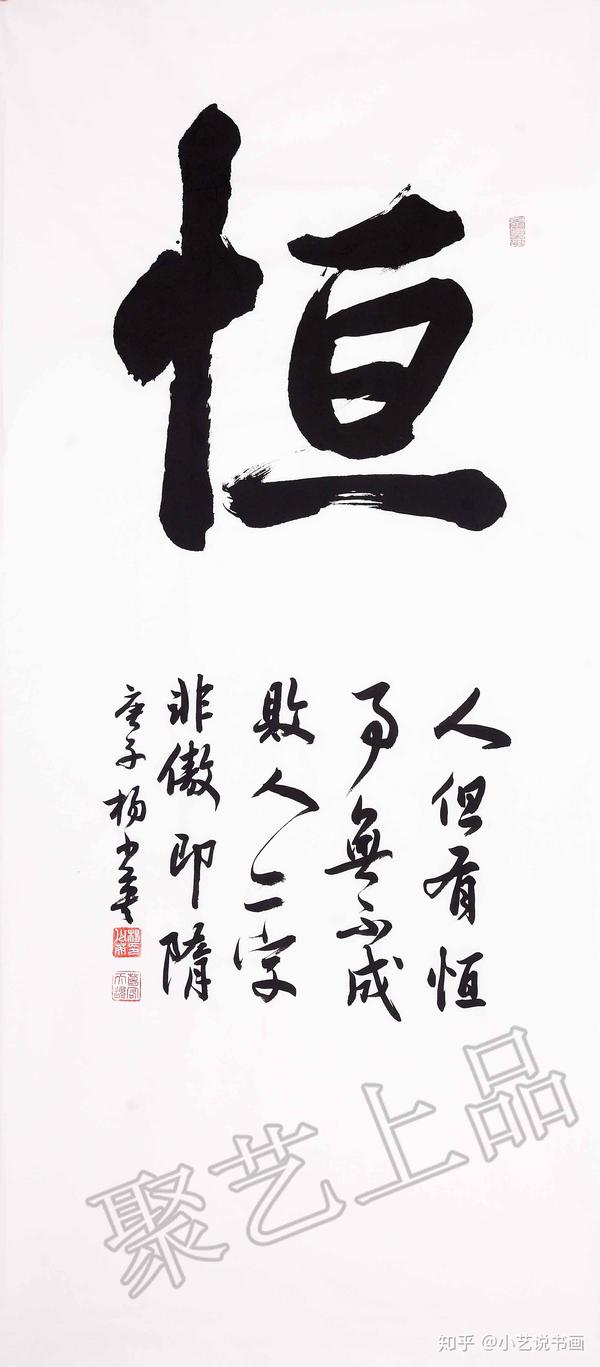 恒
人但有恒
事無不成
敗人二字
非傲即隋
庚子杨
聚艺上品
知乎 @小艺说书画